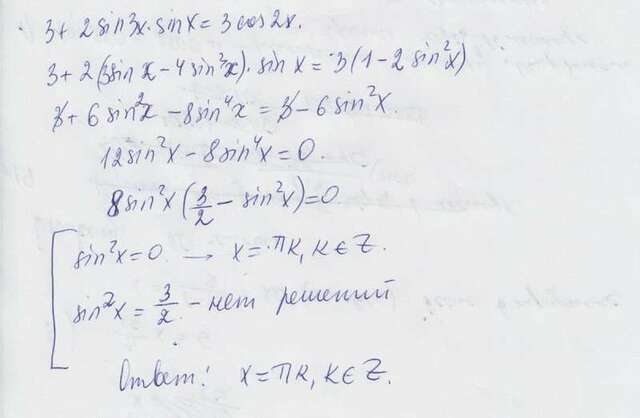 3 + 2 sin3x · sinx = 3 cos 2x.
3 + 2(3sin x - 4sin³x) · sin x = 3(1 - 2 sin²x)
3 + 6 sin²x - 8sin⁴x = 3 - 6 sin²x.
12sin²x - 8sin⁴x = 0.
8sin²x(3/2 - sin²x) = 0.
sin²x = 0. → x = πk, k ∈ Z.
sin²x = 3/2 - нет решений
Ответ: x = πk, k ∈ Z.